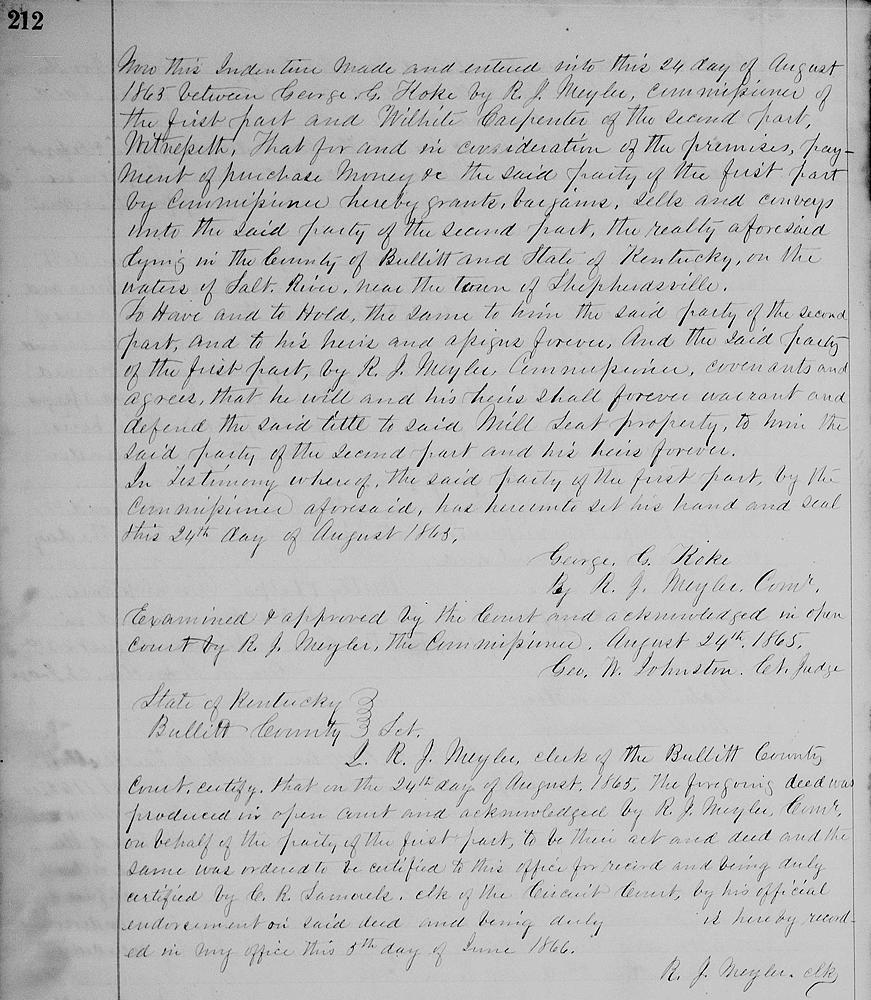 212
Now this Indenture made and entered into this 24 day of August
1865 between George. G. Hoke by R. J. Meyler, commissioner of
the first part and Wilhite Carpenter of the second part,
Witnesseth, That for and in consideration of the premises, pay-
ment of purchase Money &c the said party of the first part
by Commissioner hereby grants, bargains, sells and conveys
unto the said party of the second part, the realty aforesaid
lying in the County of Bullitt and State of Kentucky, on the
waters of Salt. River, near the town of Shepherdsville.
To Have and to Hold, the same to him the said party of the second
part, and to his heirs and assigns forever, And the said party
of the first part, by R. J. Meyler Commissioner, covenants and
agrees, that he will and his heirs shall forever warrant and
defend the said title to said Mill Seat property, to him the
said party of the second part and his heirs forever.
In Testimony whereof, the said party of the first part, by the
Commissioner aforesaid, has hereunto set his hand and seal
this 24th day of August 1865,
George. G. Hoke
By R. J. Meyler. Comr.
Examined & approved by the Court and acknowledged in open
court by R. J. Meyler, the Commissioner. August 24th, 1865.
Geo. W. Johnston. Ct. Judge
State of Kentucky
Bullitt County Sct.
I. R. J. Meyler, clerk of the Bullitt County
Court. certify. that on the 24th day of August. 1865, The foregoing deed was
produced in open court and acknowledged by R. J. Meyler, Comr,
on behalf of the party of the first part, to be their act and deed and the
same was ordered to be certified to this office for record and being duly
certified by C. R. Samuels. clk of the Circuit Court, by his official
endorsement on said deed and being duly is hereby record-
ed in my office this 5th day of June 1866.
R. J. Meyler. clk